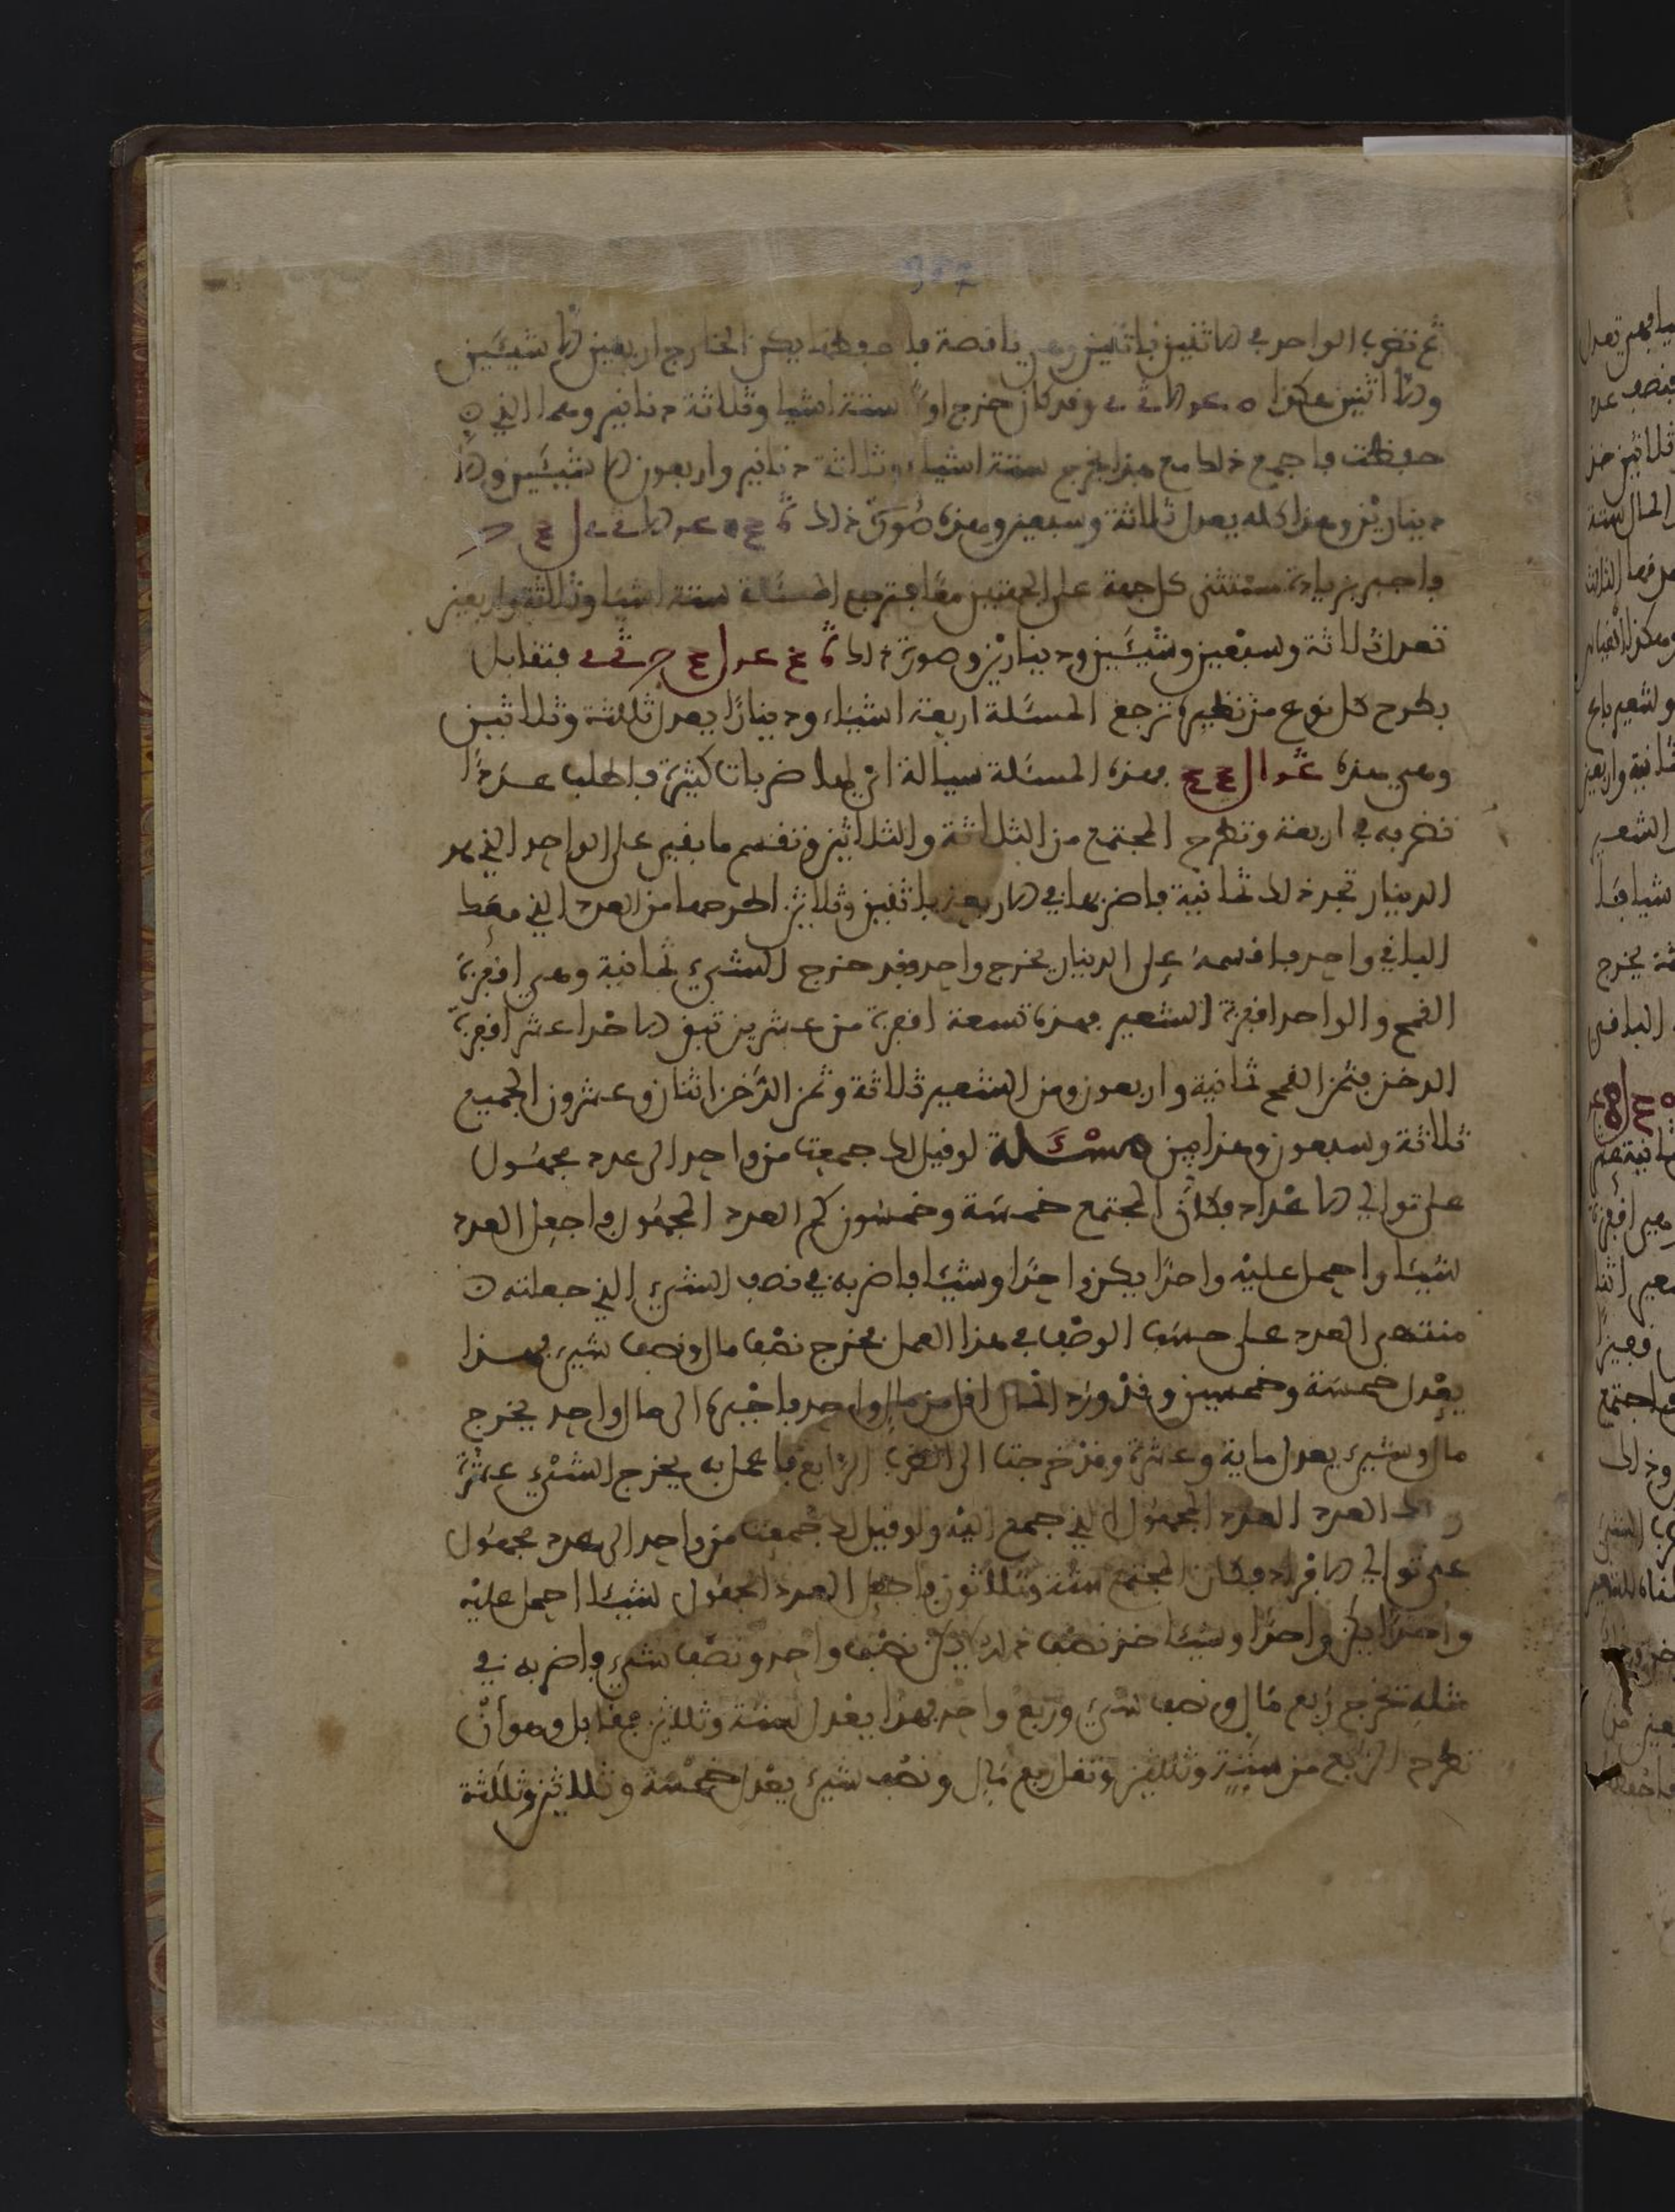 ثم تضرب الواحد في الاثنين باثنين وهي ناقصة فاحفظها يكن الخارج اربعين الا شيئين
والا اثنين هكذا وقد كان خرج اولا ستة اشيا وثلاثة دنانير وهما الذي
حفظت فاجمع ذلك مع هذا يخرج ستة اشياء وثلاثة دنانير واربعون الا شيئين والا
دينارين وهذا كله يعدل ثلاثة وسبعين وهذه صورة ذلك
فاجبر بزيادة مستثنى كل جهة على الجهتين معا فترجع المسئلة ستة اشيا وثلاثة واربعين
تعدل ثلاثة وسبعين وشيئين ودينارين وصورة ذلك فتقابل
بطرح كل نوع من نظيره ترجع المسئلة اربعة اشياء ودينارا يعدل ثلاثة وثلاثين
وهي هذه فهذه المسئلة سيالة اي لها ضربات كثيرة فاطلب عددا
تضربه في اربعة وتطرح المجتمع من الثلاثة والثلاثين وتقسم ما بقي على الواحد الذي هو
الدينار تجد ذلك ثمانية فاضربها في الاربعة باثنين وثلاثين اطرحها من العدد الذي معك
الباقي واحد فاقسمه على الدينار يخرج واحد فقد خرج الشيء ثمانية وهي اقفزة
القمح والواحد اقفزة الشعير فهذه تسعة اقفزة من عشرين تبقى الاحدا عشر اقفزة
الدخن فثمن القمح ثمانية واربعون ومن الشعير ثلاثة وثمن الدخن اثنان وعشرون الجميع
ثلاثة وسبعون وهذا بين مسئلة لو قيل لك جمعت من واحد الى عدد مجهول
على توالي الاعداد فكان المجتمع خمسة وخمسون كم العدد المجهول فاجعل العدد
شيئا واحمل عليه واحدا يكن واحدا وشيئا فاضربه في نصف الشيء الذي جعلته
منتهى العدد على حسب الوصف في هذا العمل يخرج نصف مال ونصف شيء فهذا
يعدل خمسة وخمسين وقد ورد المال اقل من مال واحد فاجبره الى مال واحد يخرج
مال وشيء يعدل ماية وعشرة وقد خرجت الى الضرب الرابع فاعمل به يخرج الشيء عشرة
وذلك العدد العدد المجهول الذي جمع اليه ولو قيل لك جمعت من واحد الى عدد مجهول
على توالي الافراد فكان المجتمع ستة وثلاثون فاجعل العدد المجهول شيئا احمل عليه
واحدا يكن واحدا وشيئا خذ نصف ذلك يكن نصف واحد ونصف شيء فاضربه في
مثله يخرج ربع مال ونصف شيء وربع واحد فهذا يعدل ستة وثلاثين فقابل وهو أن
تطرح الربع من ستة وثلاثين وتقل ربع مال ونصف شيء يعدل خمسة وثلاثين وثلاثة